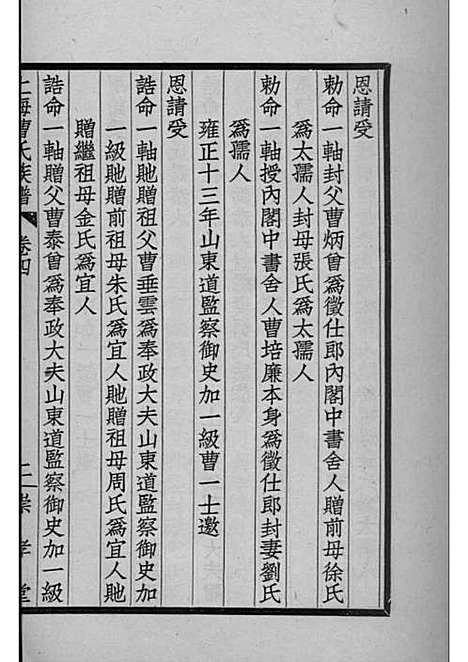 恩請受
勅命一軸封父曹炳曾爲徵仕郎內閣中書舍人贈前母徐氏
爲太孺人封母張氏爲太孺人
勅命一軸授內閣中書舍人曹培廉本身爲徵仕郎封妻劉氏
爲孺人
雍正十三年山東道監察御史加一級曹一士邀
恩請受
誥命一軸貤贈祖父曹垂雲爲奉政大夫山東道監察御史加
一級貤贈前祖母朱氏爲宜人貤贈祖母周氏爲宜人貤
贈繼祖母金氏爲宜人
誥命一軸贈父曹泰曾爲奉政大夫山東道監察御史加一級
上海曹氏族譜 卷四 二 崇孝堂